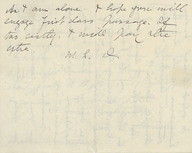 As I am alone I hope you will
engage first class passage. If
too costly I will pay the
extra
M. L. D